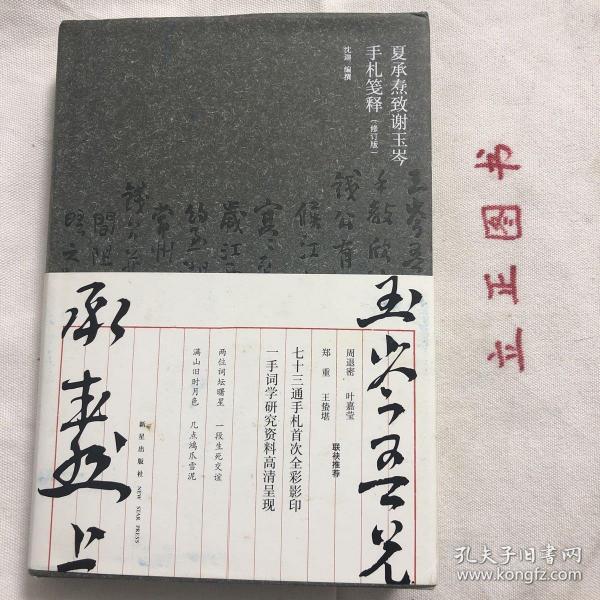 夏承焘致谢玉岑
手札笺释（修订版）
沈迦 编撰
玉岑吾兄
周退密 叶嘉莹
郑重 王蛰堪
联袂推荐
七十三通手札首次全彩影印
一手词学研究资料高清呈现
两位词坛曙星 一段生死交谊
满山旧时月色 几点鸿爪雪泥
新星出版社 NEW STAR PRESS
承焘上
立正图书
孔夫子旧书网
www.kongfz.com